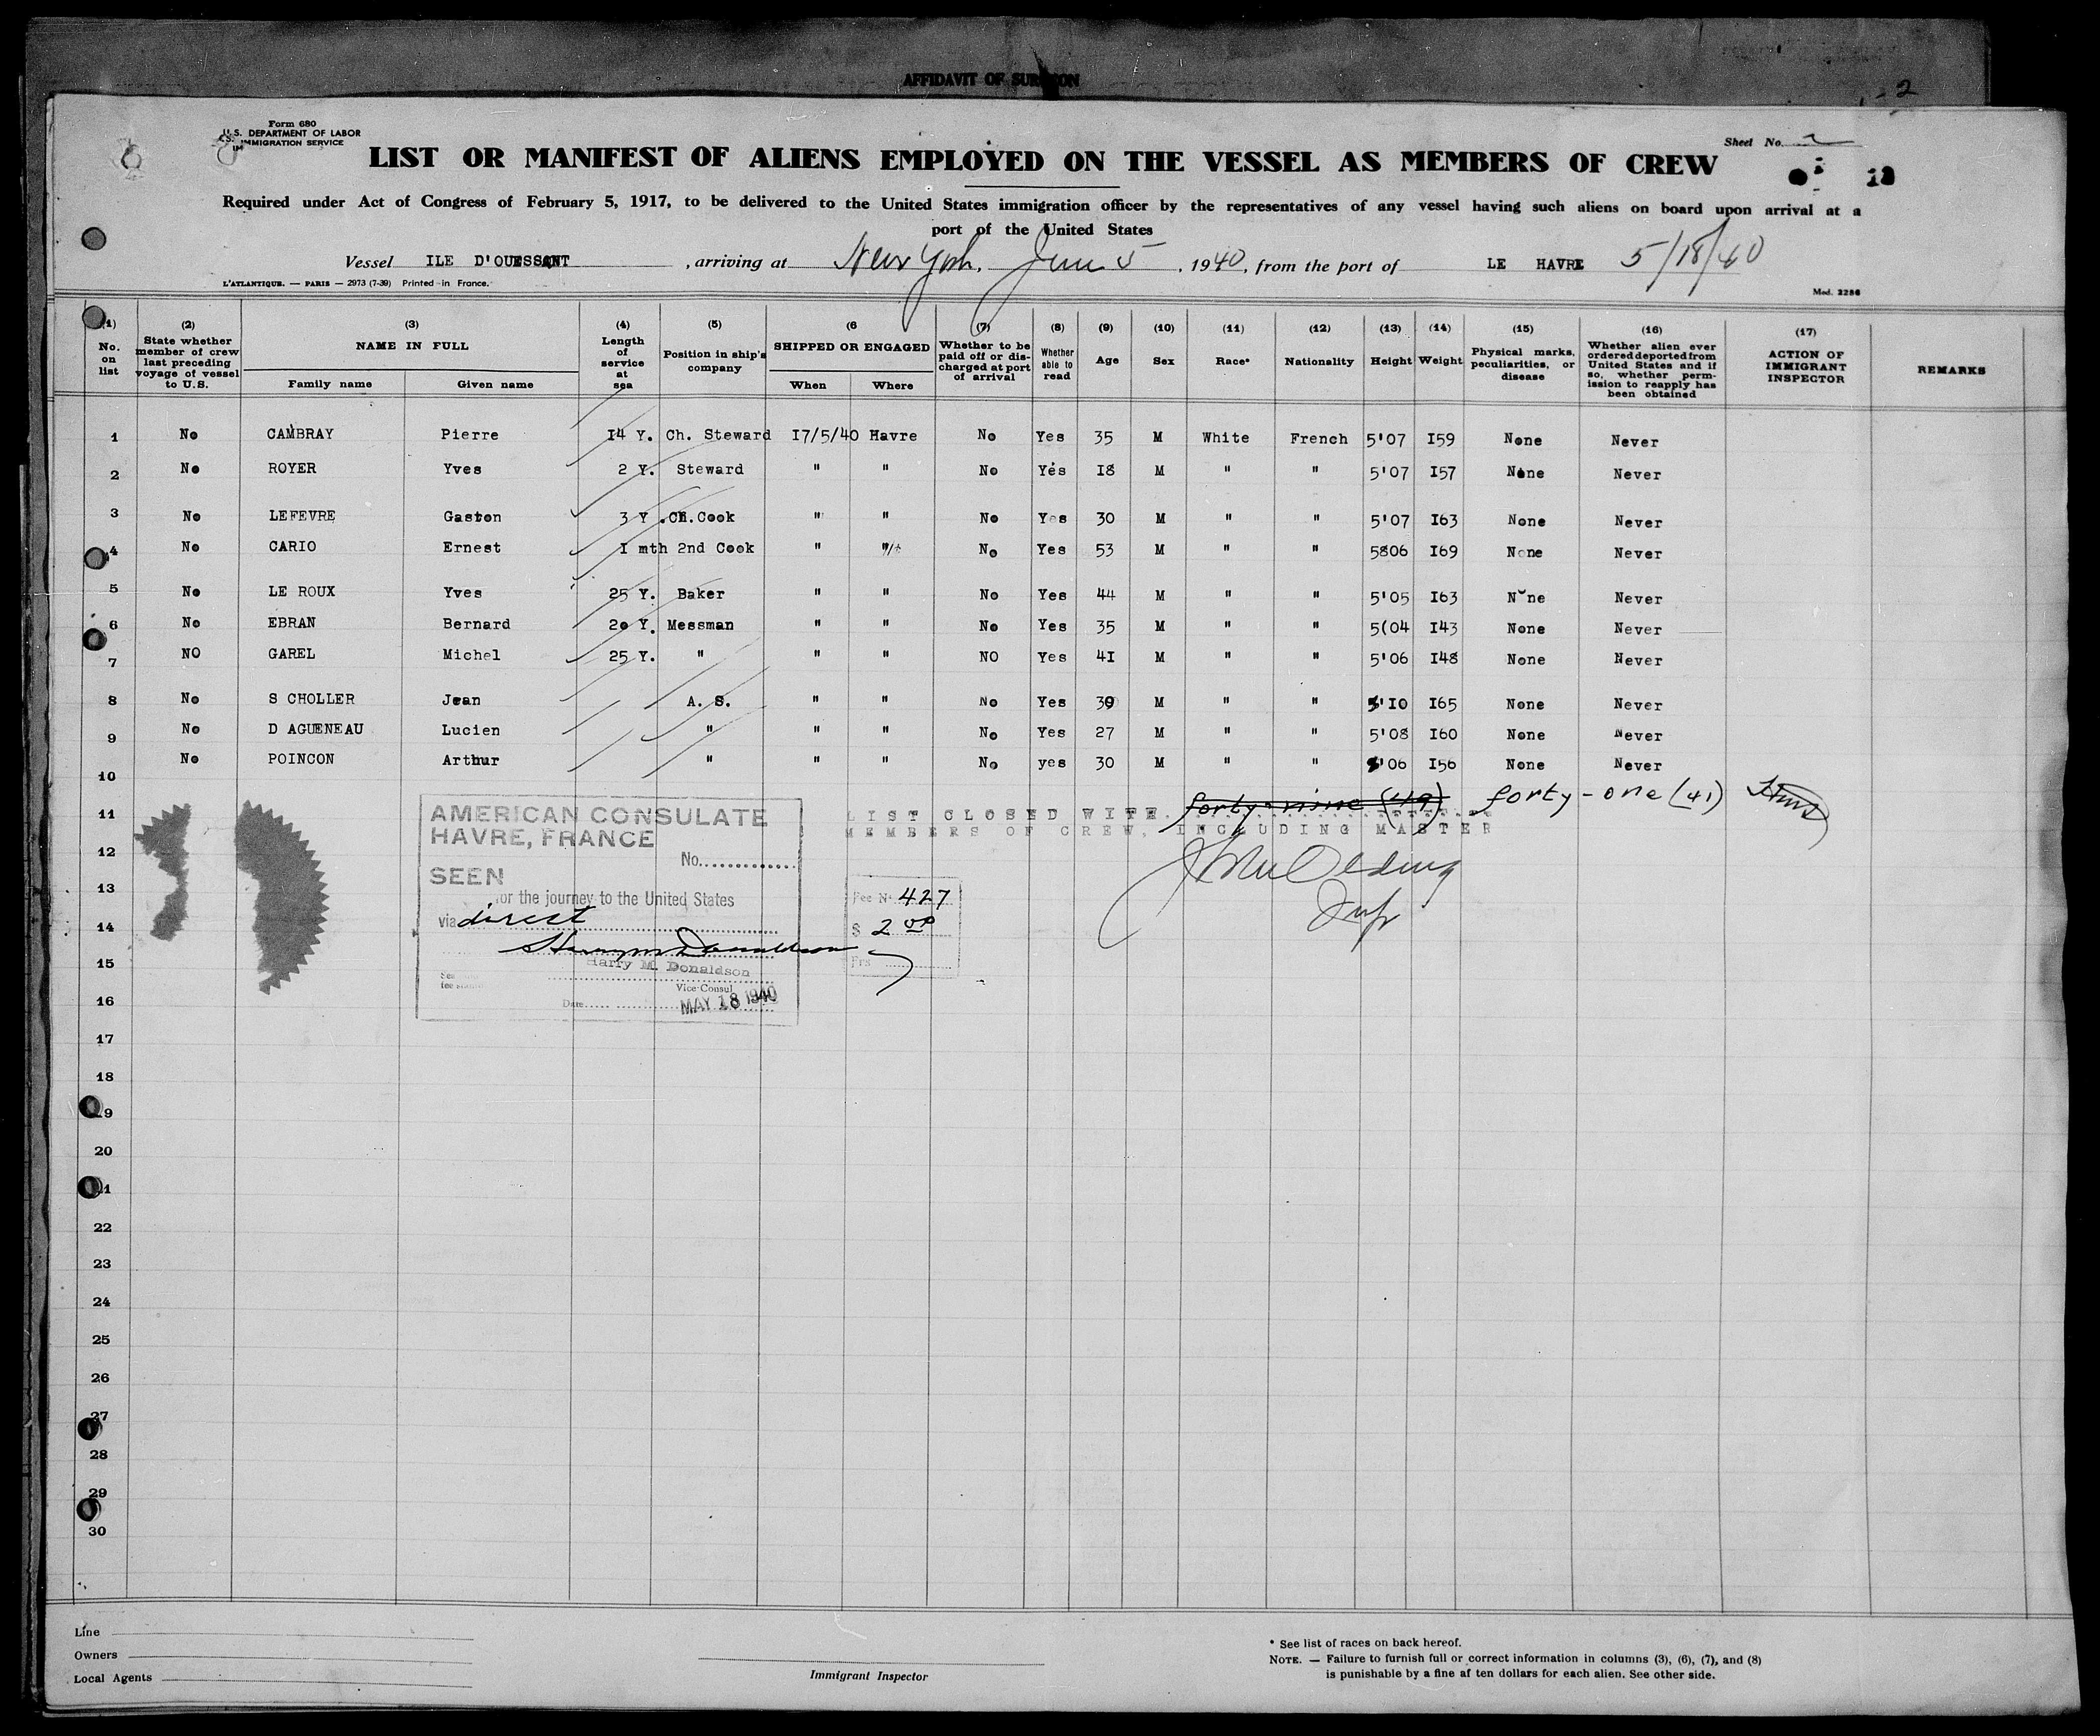 AFFIDAVIT OF SURGEON
- 2
Form 680
U.S. DEPARTMENT OF LABOR
IMMIGRATION SERVICE
Sheet No. 2
LIST OR MANIFEST OF ALIENS EMPLOYED ON THE VESSEL AS MEMBERS OF CREW
Required under Act of Congress of February 5, 1917, to be delivered to the United States immigration officer by the representatives of any vessel having such aliens on board upon arrival at a
port of the United States
Vessel ILE D'OUESSANT, arriving at New York, June 5, 1940, from the port of LE HAVRE 5/18/40
L'ATLANTIQUE. — PARIS — 2973 (7-39) Printed in France.
Mod. 2286
(1) No. on list
(2) State whether member of crew last preceding voyage of vessel to U.S.
(3) NAME IN FULL Family name Given name
(4) Length of service at sea
(5) Position in ship's company
(6 SHIPPED OR ENGAGED When Where
(7) Whether to be paid off or discharged at port of arrival
(8) Whether able to read
(9) Age
(10) Sex
(11) Race*
(12) Nationality
(13) Height
(14) Weight
(15) Physical marks, peculiarities, or disease
(16) Whether alien ever ordered deported from United States and if so, whether permission to reapply has been obtained
(17) ACTION OF IMMIGRANT INSPECTOR
REMARKS
1 No CAMBRAY Pierre I4 Y. Ch. Steward I7/5/40 Havre No Yes 35 M White French 5'07 I59 None Never
2 No ROYER Yves 2 Y. Steward " " No Yes I8 M " " 5'07 I57 None Never
3 No LEFEVRE Gaston 3 Y. Ch.Cook " " No Yes 30 M " " 5'07 I63 None Never
4 No CARIO Ernest I mth 2nd Cook " " No Yes 53 M " " 5806 I69 None Never
5 No LE ROUX Yves 25 Y. Baker " " No Yes 44 M " " 5'05 I63 None Never
6 No EBRAN Bernard 20 Y. Messman " " No Yes 35 M " " 5(04 I43 None Never
7 NO GAREL Michel 25 Y. " " " NO Yes 4I M " " 5'06 I48 None Never
8 No S CHOLLER Jean A. S. " " No Yes 39 M " " 5'I0 I65 None Never
9 No D AGUENEAU Lucien " " " No Yes 27 M " " 5'08 I60 None Never
10 No POINCON Arthur " " " No yes 30 M " " 5'06 I56 None Never
11
12
13
14
15
16
17
18
19
20
21
22
23
24
25
26
27
28
29
30
LIST CLOSED WITH forty-nine (49) forty-one (41)
MEMBERS OF CREW, INCLUDING MASTER
AMERICAN CONSULATE
HAVRE, FRANCE
No.
SEEN
for the journey to the United States
via direct
Harry M. Donaldson
Harry M. Donaldson
Vice Consul
Date MAY 18 1940
Fee No. 427
$ 2 00
Frs
Line
Owners
Local Agents
Immigrant Inspector
* See list of races on back hereof.
NOTE. — Failure to furnish full or correct information in columns (3), (6), (7), and (8)
is punishable by a fine af ten dollars for each alien. See other side.